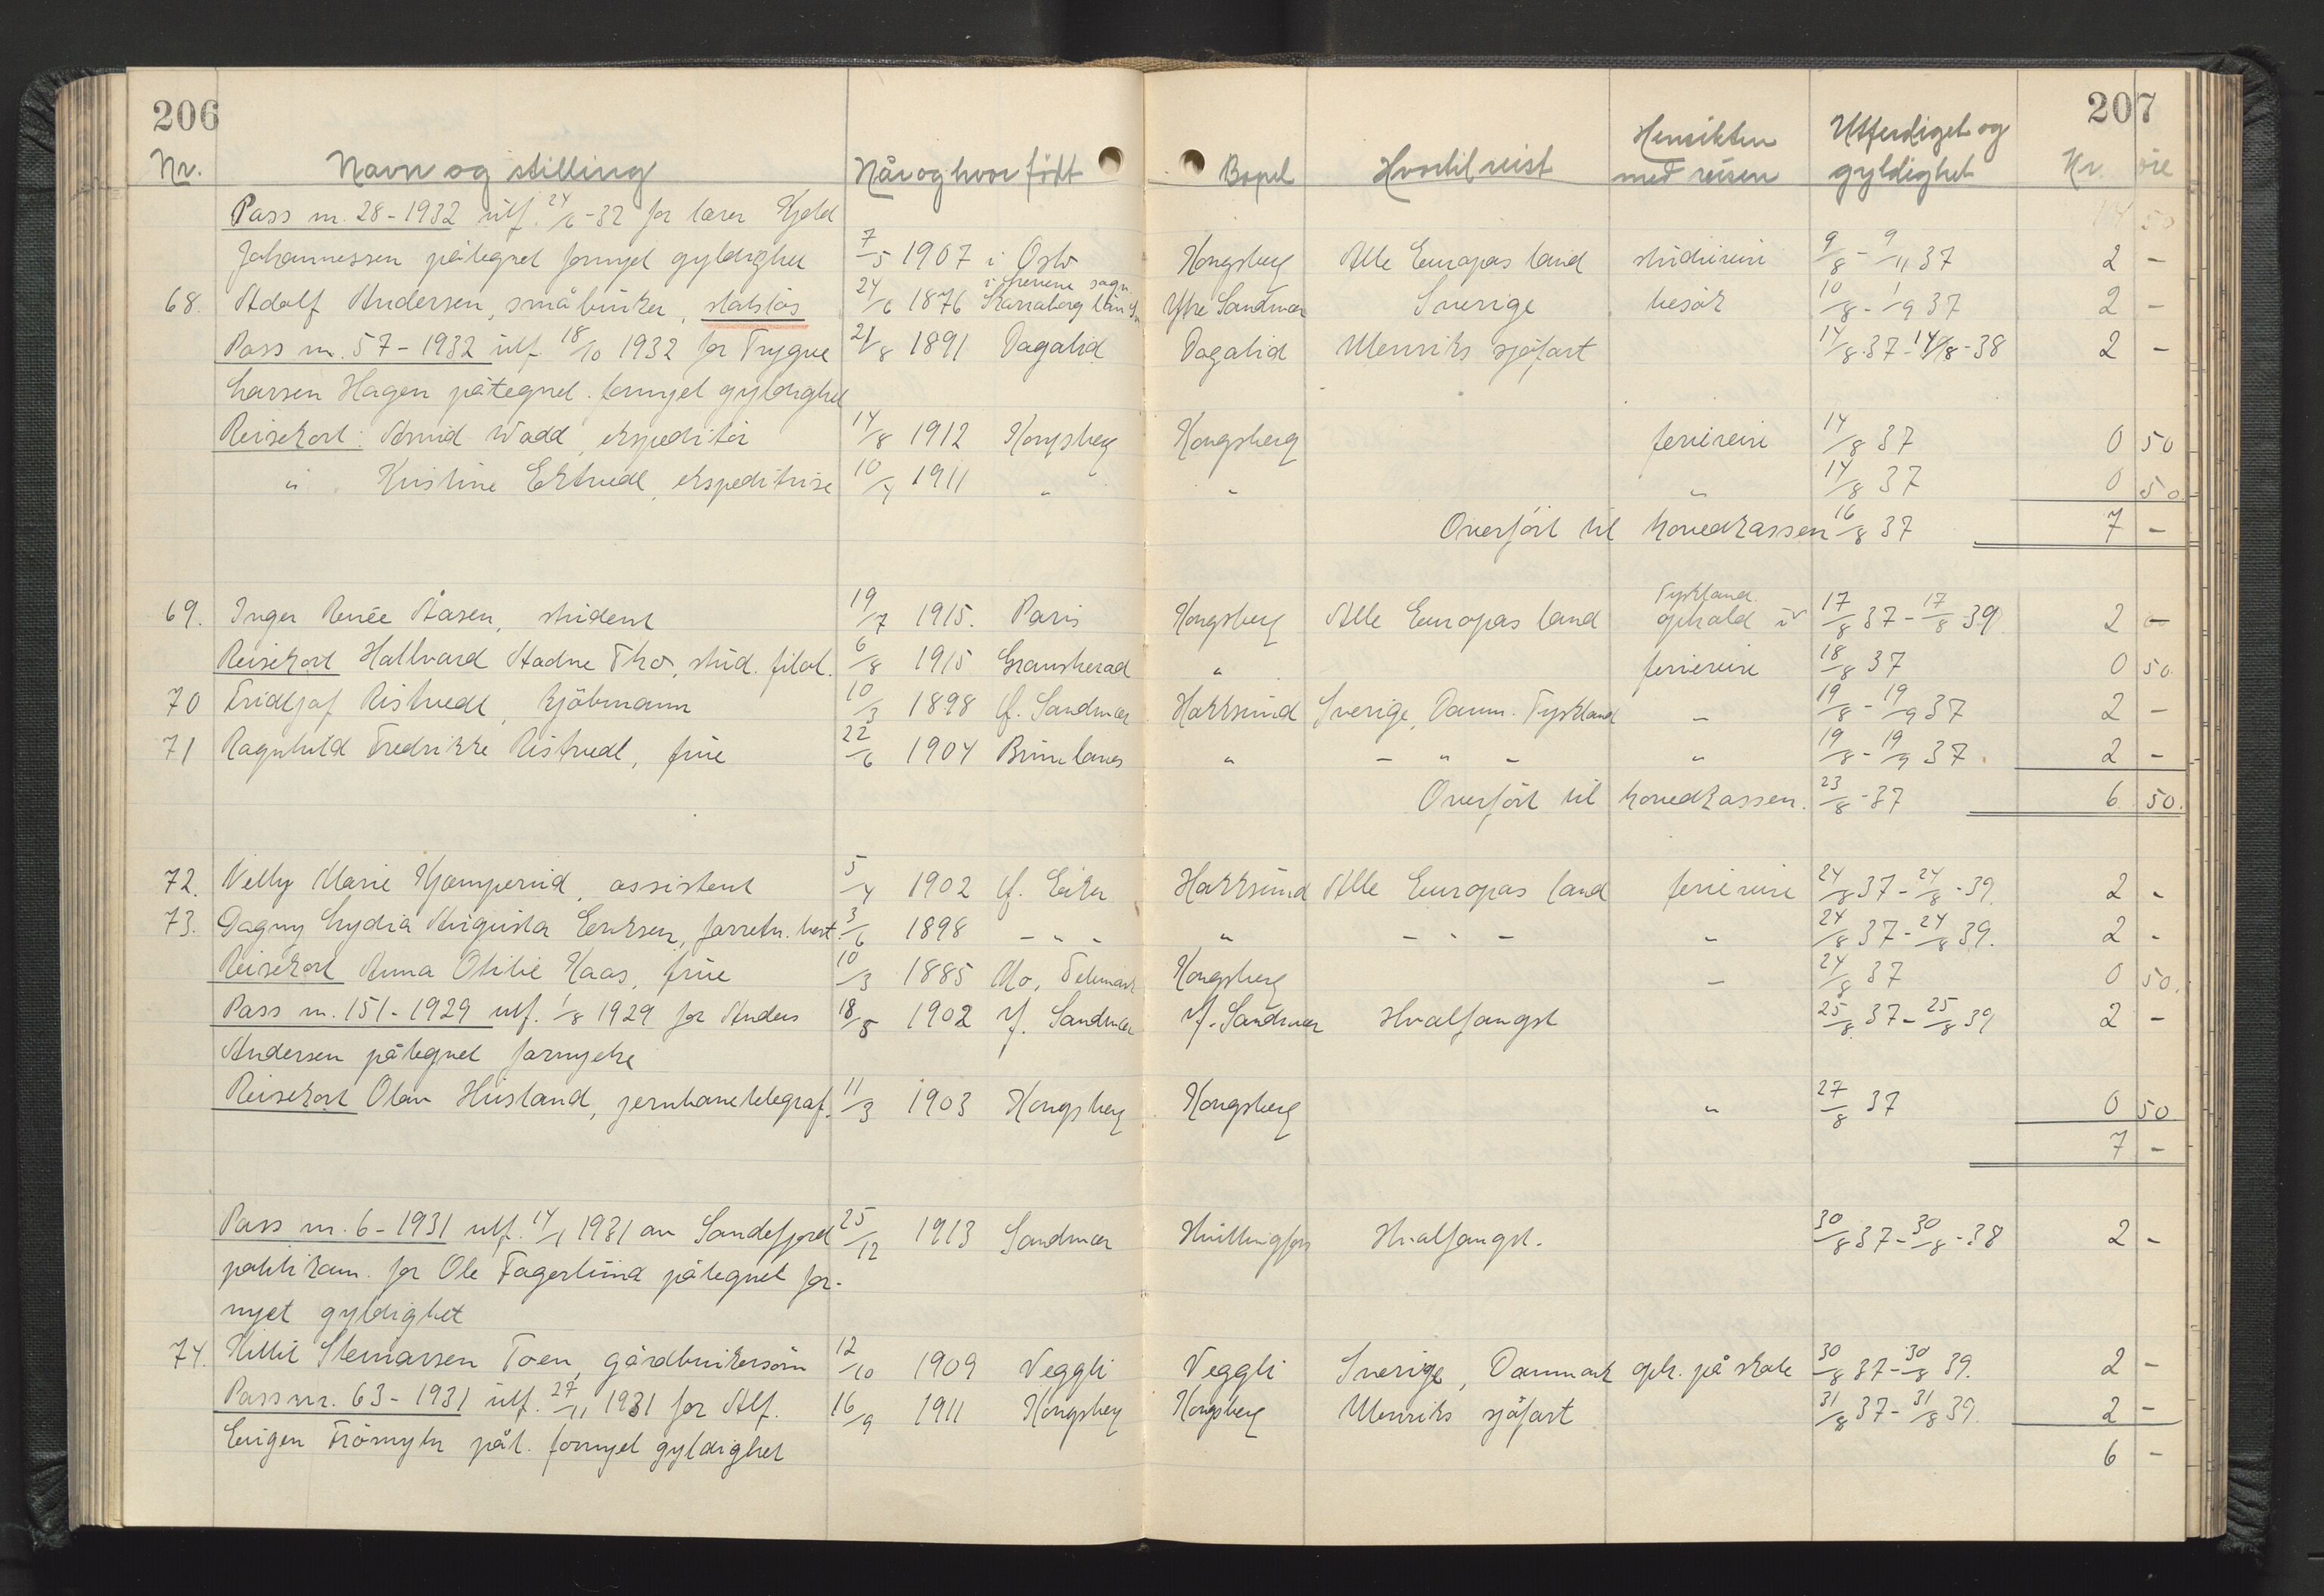 206
207
Nr. Navn og stilling Når og hvor født Bopel Hvortil reist Hensikten med reisen Utferdiget og gyldighet Kr. øre
Pass nr. 28-1932 utf. 24/6-32 for lærer Kjeld
Johannessen påtegnet fornyet gyldighet 7/5 1907 i Oslo Kongsberg Alle Europas land studiereise 9/8-9/11 37 2 -
68. Adolf Andersen, småbruker, statsløs 24/6 1876 Skaraborg län Ytre Sandsvær Sverige besøk 10/8-1/9 37 2 -
Pass nr. 57-1932 utf. 18/10 1932 for Trygve 21/8 1891 Dagalid Dagalid Utenriks sjöfart 14/8-37-14/8-38 2 -
Larsen Hagen påtegnet fornyet gyldighet
Reisekort: Arvid Wadd, ekspeditör 14/8 1912 Kongsberg Kongsberg feriereise 14/8 37 0 50
" Kristine Ektvedt, ekspeditrise 10/4 1911 " " " 14/8 37 0 50
Overfört til hovedkassen 16/8 37 7 -
69. Inger Renée Åasen, student 19/7 1915. Paris Kongsberg Alle Europas land ophold i Tyskland. 17/8 37-17/8 39. 2 -
Reisekort Hallvard Aadne Tho, stud. filol. 6/8 1915 Gransherad " feriereise 18/8 37 0 50
70 Fridtjof Ristvedt, kjöbmann 10/3 1898 Y. Sandsvær Hokksund Sverige, Danm. Tyskland - 19/8-19/9 37 2 -
71 Ragnhild Fredrikke Ristvedt, frue 22/6 1904 Brunlanes " - " - " 19/8-19/9 37 2 -
Overfört til hovedkassen. 23/8-37 6 50.
72. Nelly Marie Kjemperud, assistent 5/4 1902 Ö. Eiker Hokksund Alle Europas land feriereise 24/8 37-24/8-39. 2 -
73. Dagny Lydia Augusta Eriksen, forretn. best. 3/6 1898 - " - " - " - - 24/8 37-24/8 39. 2 -
Reisekort Anna Otilie Haas, frue 10/3 1885 Mo, Telemark Kongsberg - 24/8 37 0 50.
Pass nr. 151-1929 utf. 1/8 1929 for Anders 18/5 1902 Y. Sandsvær Y. Sandsvær Hvalfangst 25/8 37-25/8 39 2 -
Andersen påtegnet fornyelse
Reisekort Olav Husland, jernbanetelegraf. 11/3 1903 Kongsberg Kongsberg " 27/8 37 0 50
7 -
Pass nr. 6-1931 utf. 14/1 1931 av Sandefjord 25/12 1913 Sandsvær Hvittingfoss Hvalfangst. 30/8 37-30/8-38 2 -
politikam. for Ole Fagerlund påtegnet for-
nyet gyldighet
74. Kittil Steinarsen Toen, gårdbrukersönn 12/10 1909 Veggli Veggli Sverige, Danmark oph. på skole 30/8 37-30/8 39. 2 -
Pass nr. 63-1931 utf. 27/11 1931 for Alf. 16/9 1911 Kongsberg Kongsberg Utenriks sjöfart 31/8 37-31/8 39. 2 -
Eugen Frömyhr påt. fornyet gyldighet 6 -